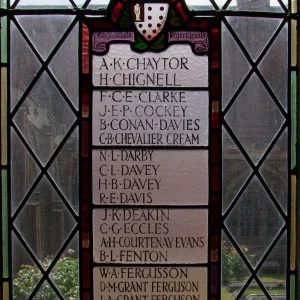 A·K·CHAYTOR
H·CHIGNELL
F·C·E·CLARKE
J·E·P·COCKEY
B·CONAN-DAVIES
C·B·CHEVALIER CREAM
N·L·DARBY
C·L·DAVEY
H·B·DAVEY
R·E·DAVIS
J·K·DEAKIN
C·G·ECCLES
A·H·COURTENAY EVANS
B·L·FENTON
W·A·FERGUSSON
D·M·GRANT FERGUSON
I·A·GRANT FERGUSON